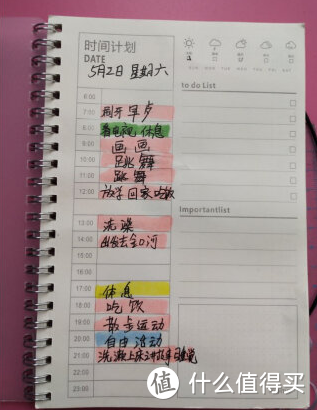 时间计划
DATE
5月2日 星期六
SUN MON TUE WED THU FRI SAT
to do List
6:00
7:00 早点
8:00 看电视 休息
9:00 画画
10:00 跳舞
11:00 跳舞
12:00 放学回家吃饭
Importantlist
13:00 洗澡
14:00 出发去金口河
15:00
16:00
17:00 休息
18:00 吃饭
19:00 散步运动
20:00 自由活动
21:00 洗漱上床讲故事睡觉
22:00
23:00
值 什么值得买